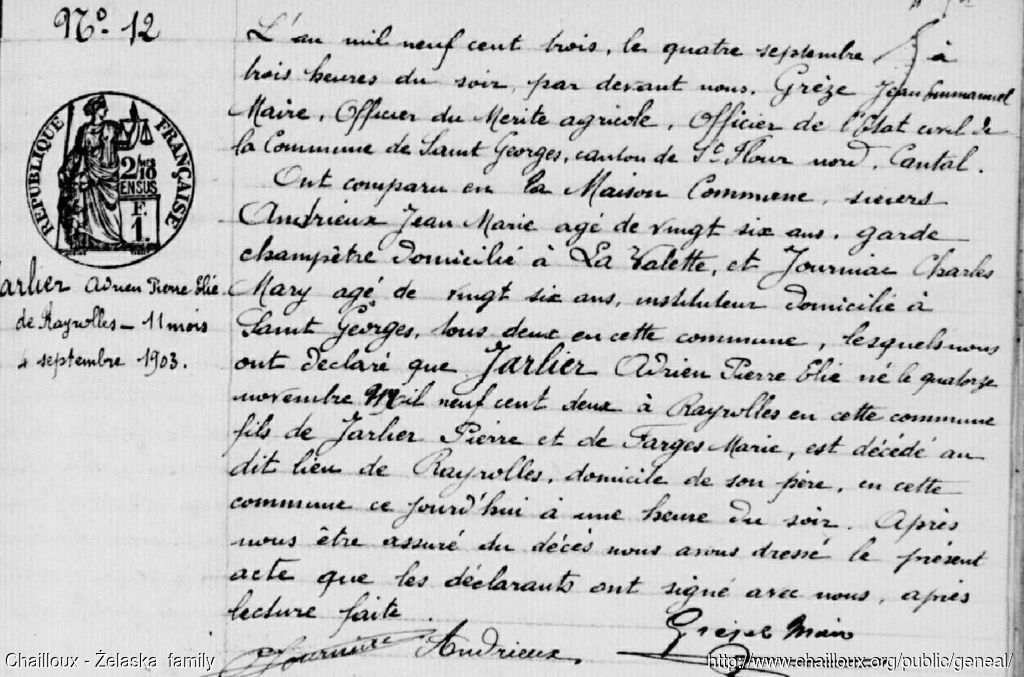 N° 12
RÉPUBLIQUE FRANÇAISE
2/10
EN SUS
F.
1.
Jarlier Adrien Pierre Elie
de Rayrolles - 11 mois
4 septembre 1903.
L'an mil neuf cent trois, le quatre septembre à
trois heures du soir, par devant nous, Grèze Jean Emmanuel
Maire, Officier du Merite agricole, Officier de l'Etat civil de
la Commune de Saint Georges, canton de St Flour nord, Cantal.
Ont comparu en la Maison Commune, sieurs
Andrieux Jean Marie agé de vingt six ans, garde
champêtre domicilié à La Valette, et Journiac Charles
Mary agé de vingt six ans, instituteur domicilié à
Saint Georges, tous deux en cette commune, lesquels nous
ont déclaré que Jarlier Adrien Pierre Elie né le quatorze
novembre Mil neuf cent deux à Rayrolles en cette commune
fils de Jarlier Pierre et de Farges Marie, est décédé au
dit lieu de Rayrolles, domicile de son père, en cette
commune ce jourd'hui à une heure du soir. Après
nous être assuré du décès nous avons dressé le présent
acte que les déclarants ont signé avec nous, après
lecture faite.
Journiac Andrieux
Chailloux - Želaska family
http://www.chailloux.org/public/geneal/